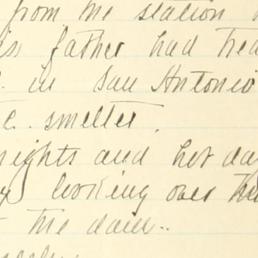 from the station
father had
in San Antonio
smelter.
nights and hot da
looking over the
the dam..